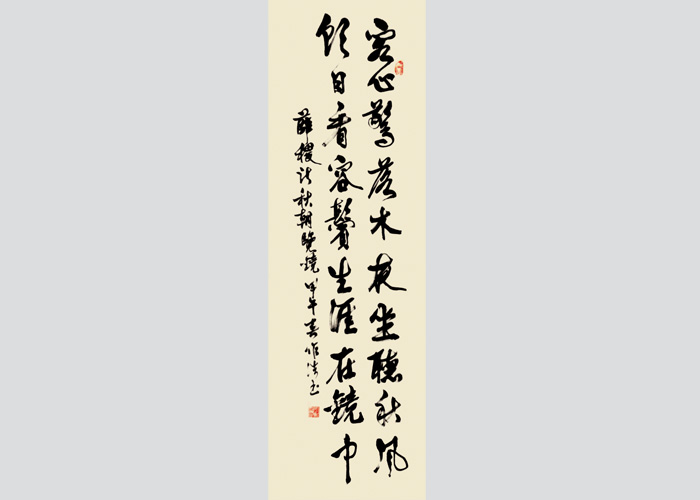 客心驚落木夜坐聽秋風
朝日看容鬢生涯在鏡中
薛稷詩秋朝覽鏡 甲午春作